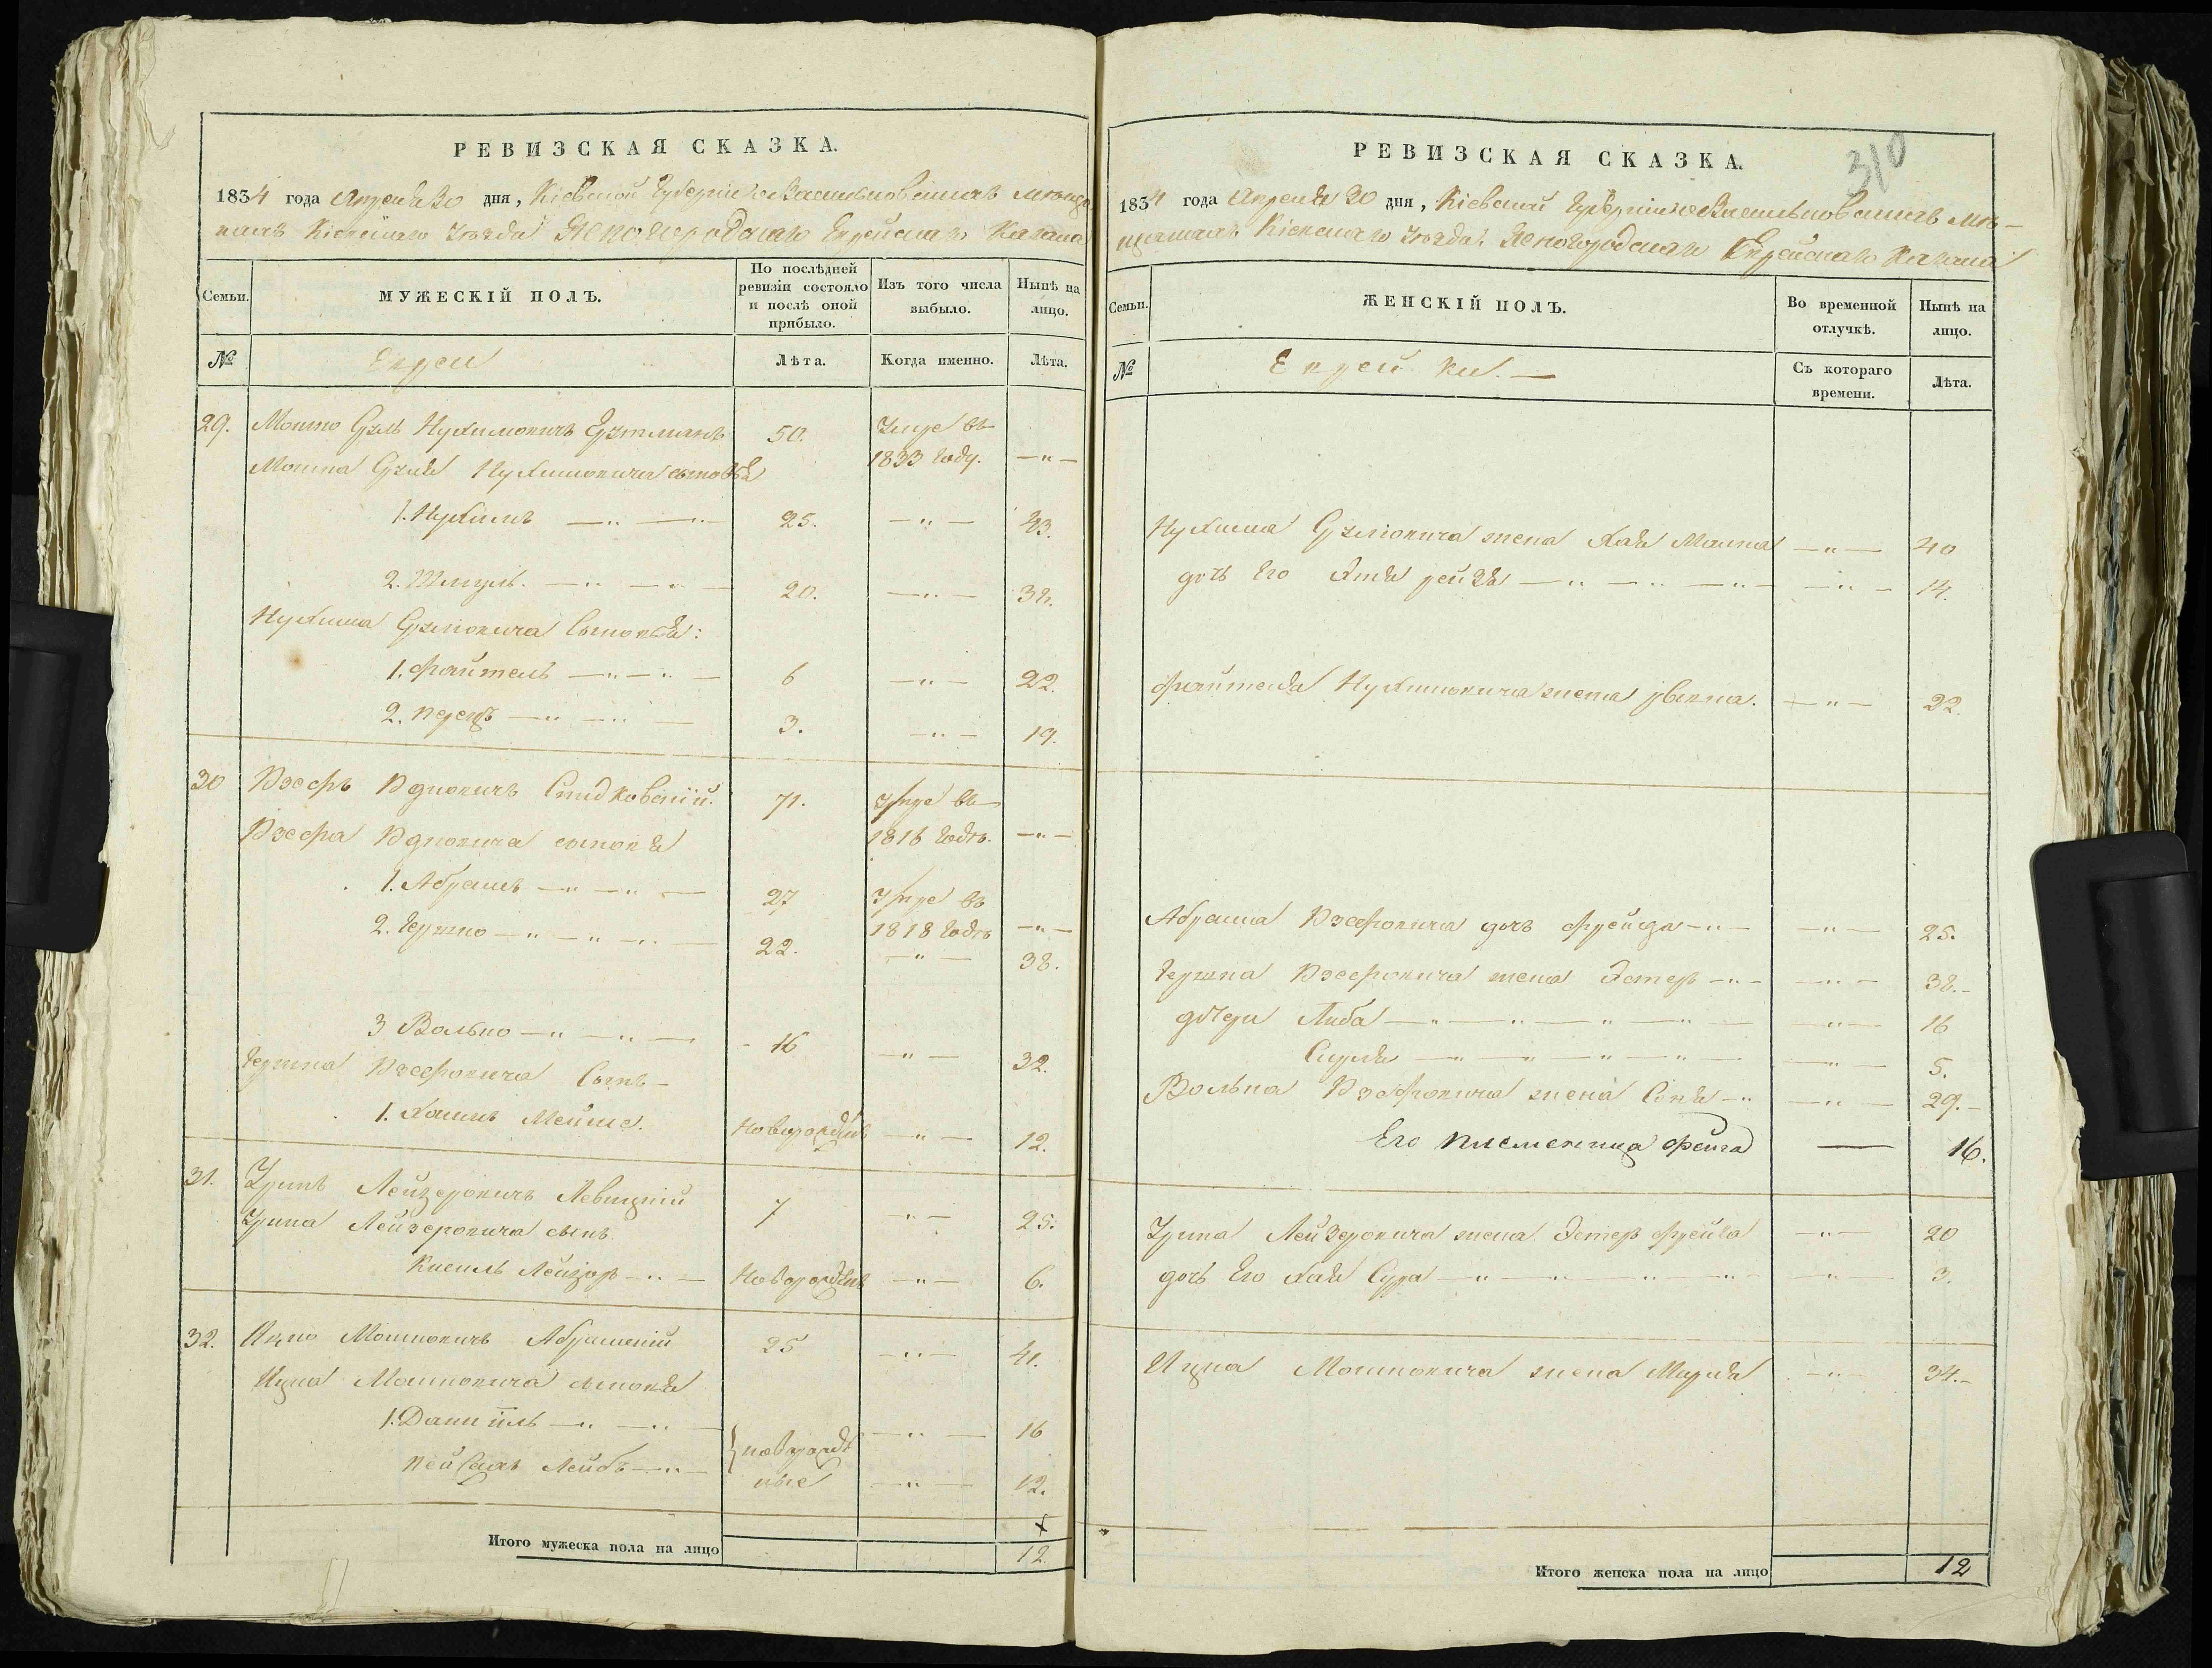 РЕВИЗСКАЯ СКАЗКА.
1834 года Апреля 30 дня, Кіевской Губерніи Васильковскихъ мѣща
намъ Кіевскаго уѣзда Ясногородскаго Еврейскаго Кагала
Семьи.
МУЖЕСКІЙ ПОЛЪ.
По послѣдней ревизіи состояло и послѣ оной прибыло.
Изъ того числа выбыло.
Нынѣ на лицо.
№
Евреи
Лѣта.
Когда именно.
Лѣта.
29. Мошко Нухимовичъ 50. Умре въ
Мошка Нухимовича сыновья 1833 году. —"—
1. Нухимъ —"— 25. —"— 43.
2. Шмуль. —"— 20. —"— 38.
Нухима сыновья:
1. Файтель —"— 6 —"— 22.
2. Перецъ —"— 3. —"— 19.
30 71. Умре въ
сыновья 1816 годѣ. —"—
1. Абрамъ —"— 27 Умре въ
2. Гершко —"— 22. 1818 годѣ —"—
—"— 38.
3 Волько —"— 16 —"— 32.
Гершка Іосефовича Сынъ —
1. Хаимъ Мейше. Новорожден —"— 12.
31. Лейзеровичъ Левицкій 7 —"— 25.
Лейзеровича сынъ
Кисиль Лейзоръ —"— Новорожден —"— 6.
32. Ицко Мошковичъ Абрамскій 25 —"— 41.
Ицка Мошковича сыновья
1. Даниіль —"— —"— 16
Пейсахъ Лейбъ —"— новорожден
ные —"— 12.
Итого мужеска пола на лицо 12
310
РЕВИЗСКАЯ СКАЗКА.
1834 года Апреля 30 дня, Кіевской Губерніи Васильковскихъ мѣ-
щанамъ Кіевскаго уѣзда Ясногородскаго Еврейскаго Кагала
Семьи.
ЖЕНСКІЙ ПОЛЪ.
Во временной отлучкѣ.
Нынѣ на лицо.
№
Еврейки. —
Съ котораго времени.
Лѣта.
Нухима жена Хая Малка —"— 40
дочь его —"— 14.
Файтеля Нухимовича жена Ривка. —"— 22.
Абрама Іосефовича дочь Фрейда —"— —"— 25.
Гершка Іосефовича жена Эстеръ —"— —"— 38.-
дочери Либа —"— —"— 16
—"— —"— 5.
Волька Іосефовича жена Соня —"— —"— 29.-
Его племенница Фейга — 16.
Лейзеровича жена Эстеръ Фрейда —"— 20
дочь Его Хая Сура —"— —"— 3.
Ицка Мошковича жена Марія —"— 34.-
Итого женска пола на лицо 12